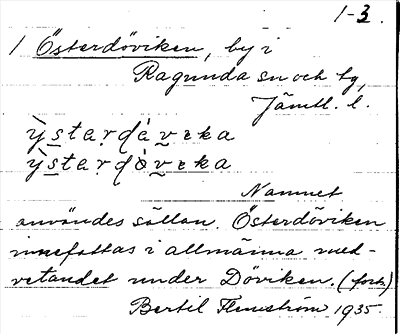 1-3.
1 Österdöviken, by i
Ragunda sn och hg,
Jämtl. l.
ỳstaṛdȧvɛka
ỳstaṛdòvɛka
Namnet
användes sällan. Österdöviken
innefattas i allmänna med-
vetandet under Döviken. (forts)
Bertil Flemström 1935.